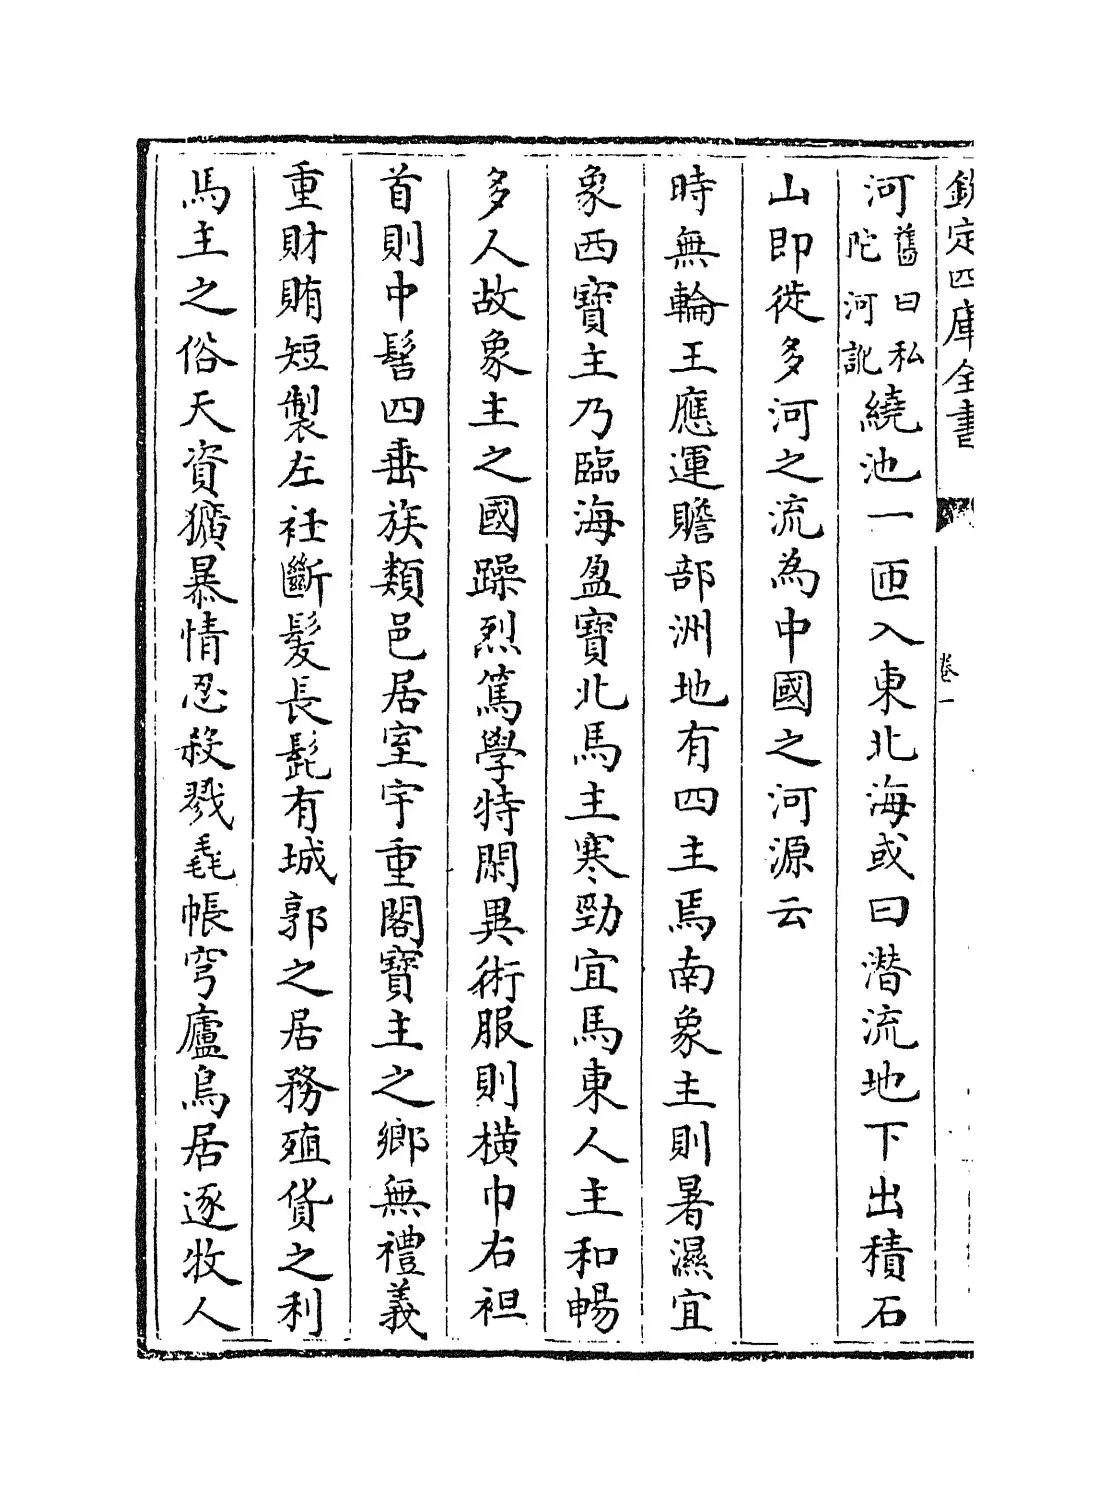 欽定四庫全書
卷一
河舊曰私陀河訛繞池一匝入東北海或曰潛流地下出積石
山即徙多河之流為中國之河源云
時無輪王應運贍部洲地有四主焉南象主則暑濕宜
象西寶主乃臨海盈寶北馬主寒勁宜馬東人主和暢
多人故象主之國躁烈篤學特閑異術服則橫巾右袒
首則中髻四垂族類邑居室宇重閣寶主之鄉無禮義
重財賄短製左衽斷髮長髭有城郭之居務殖貨之利
馬主之俗天資獷暴情忍殺戮毳帳穹廬鳥居逐牧人